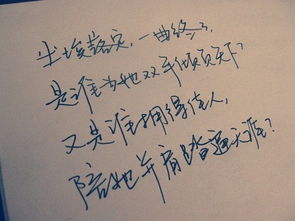 尘埃落定，一曲终了，
是谁为她双手倾天下？
又是谁拥得佳人，
陪她并肩踏遍天涯？